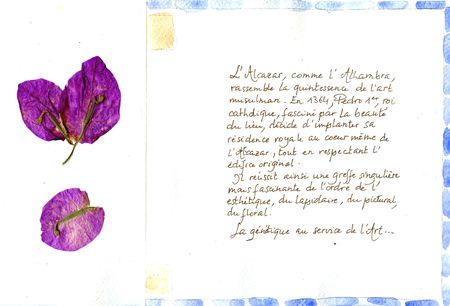 L'Alcazar, comme l'Alhambra,
rassemble la quintessence de l'art
musulman. En 1364, Pedro 1er, roi
catholique, fasciné par la beauté
du lieu, décide d'implanter sa
résidence royale au coeur même de
l'Alcazar, tout en respectant l'
édifice original.
Il réissit ainsi une greffe singulière
mais fascinante de l'ordre de l'
esthétique, du lapidaire, du pictural,
du floral.
La génétique au service de l'Art...